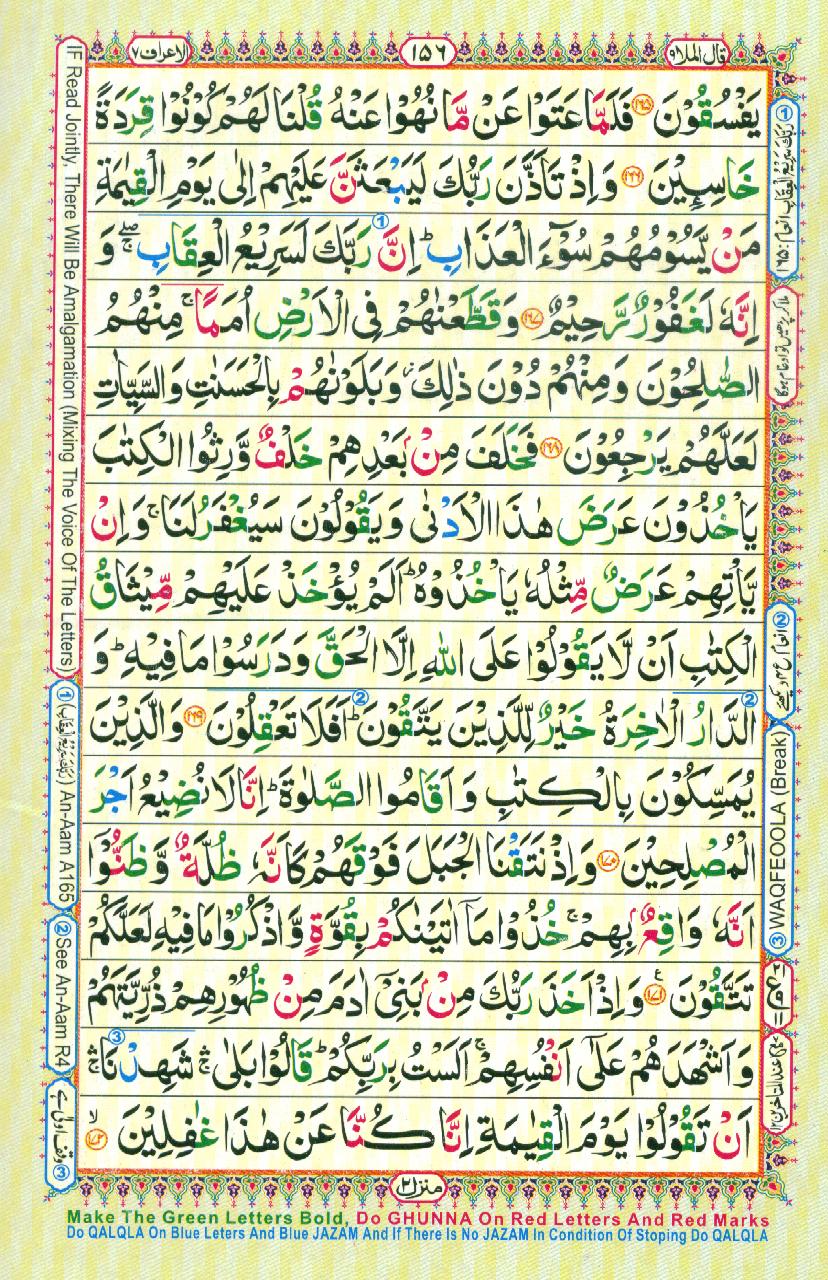 قال الملا۹
۱۵٦
الاعراف۷
يَفْسُقُوْنَ ﴿۱۶۵﴾ فَلَمَّا عَتَوْا عَنْ مَّا نُهُوْا عَنْهُ قُلْنَا لَهُمْ كُوْنُوْا قِرَدَةً
خَاسِـِٕيْنَ ﴿۱۶۶﴾ وَاِذْ تَاَذَّنَ رَبُّكَ لَيَبْعَثَنَّ عَلَيْهِمْ اِلٰى يَوْمِ الْقِيٰمَةِ
مَنْ يَّسُوْمُهُمْ سُوْٓءَ الْعَذَابِ ؕ اِنَّ ① رَبَّكَ لَسَرِيْعُ الْعِقَابِ ۖۚ وَ
اِنَّهٗ لَغَفُوْرٌ رَّحِيْمٌ ﴿۱۶۷﴾ وَقَطَّعْنٰهُمْ فِى الْاَرْضِ اُمَمًا ۚ مِنْهُمُ
الصّٰلِحُوْنَ وَمِنْهُمْ دُوْنَ ذٰلِكَ ؗ وَبَلَوْنٰهُمْ بِالْحَسَنٰتِ وَالسَّيِّاٰتِ
لَعَلَّهُمْ يَرْجِعُوْنَ ﴿۱۶۸﴾ فَخَلَفَ مِنْۢ بَعْدِهِمْ خَلْفٌ وَّرِثُوا الْكِتٰبَ
يَاْخُذُوْنَ عَرَضَ هٰذَا الْاَدْنٰى وَيَقُوْلُوْنَ سَيُغْفَرُ لَنَا ۚ وَاِنْ
يَّاْتِهِمْ عَرَضٌ مِّثْلُهٗ يَاْخُذُوْهُ ؕ اَلَمْ يُؤْخَذْ عَلَيْهِمْ مِّيْثَاقُ
الْكِتٰبِ اَنْ لَّا يَقُوْلُوْا عَلَى اللّٰهِ اِلَّا الْحَقَّ وَدَرَسُوْا مَا فِيْهِ ؕ وَ
② الدَّارُ الْاٰخِرَةُ خَيْرٌ لِّلَّذِيْنَ يَتَّقُوْنَ ؕ ② اَفَلَا تَعْقِلُوْنَ ﴿۱۶۹﴾ وَالَّذِيْنَ
يُمَسِّكُوْنَ بِالْكِتٰبِ وَاَقَامُوا الصَّلٰوةَ ؕ اِنَّا لَا نُضِيْعُ اَجْرَ
الْمُصْلِحِيْنَ ﴿۱۷۰﴾ وَاِذْ نَتَقْنَا الْجَبَلَ فَوْقَهُمْ كَاَنَّهٗ ظُلَّةٌ وَّظَنُّوْٓا
اَنَّهٗ وَاقِعٌۢ بِهِمْ ۚ خُذُوْا مَآ اٰتَيْنٰكُمْ بِقُوَّةٍ وَّاذْكُرُوْا مَا فِيْهِ لَعَلَّكُمْ
تَتَّقُوْنَ ﴿۱۷۱﴾ وَاِذْ اَخَذَ رَبُّكَ مِنْۢ بَنِىْٓ اٰدَمَ مِنْ ظُهُوْرِهِمْ ذُرِّيَّتَهُمْ
وَاَشْهَدَهُمْ عَلٰٓى اَنْفُسِهِمْ ۚ اَلَسْتُ بِرَبِّكُمْ ؕ قَالُوْا بَلٰى ۛۚ ③ شَهِدْنَا ۛۚ
اَنْ تَقُوْلُوْا يَوْمَ الْقِيٰمَةِ اِنَّا كُنَّا عَنْ هٰذَا غٰفِلِيْنَ ﴿۱۷۲﴾ ۙ
منزل۲
IF Read Jointly, There Will Be Amalgamation (Mixing The Voice Of The Letters)
① (رَبَّكَ سَرِيْعُ الْعِقَابِ) An-Aam A165
② See An-Aam R4
③ وقف اولٰی ہے
① رَبَّكَ سَرِيْعُ الْعِقَابِ انعام: ۱۶۵
ملا کر پڑھیں تو ادغام ہوگا
③ WAQFEOOLA (Break)
Make The Green Letters Bold, Do GHUNNA On Red Letters And Red Marks
Do QALQLA On Blue Leters And Blue JAZAM And If There Is No JAZAM In Condition Of Stoping Do QALQLA